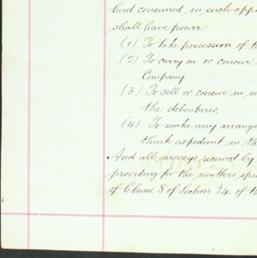 had concurred in such app
shall have power:
(1) To take possession of t
(2) To carry on or concur
Company
(3) To sell or concur in se
the debentures.
(4) To make any arrange
think expedient in th
And all moneys received by
providing for the matters spe
of Clause 8 of Section 24. of t